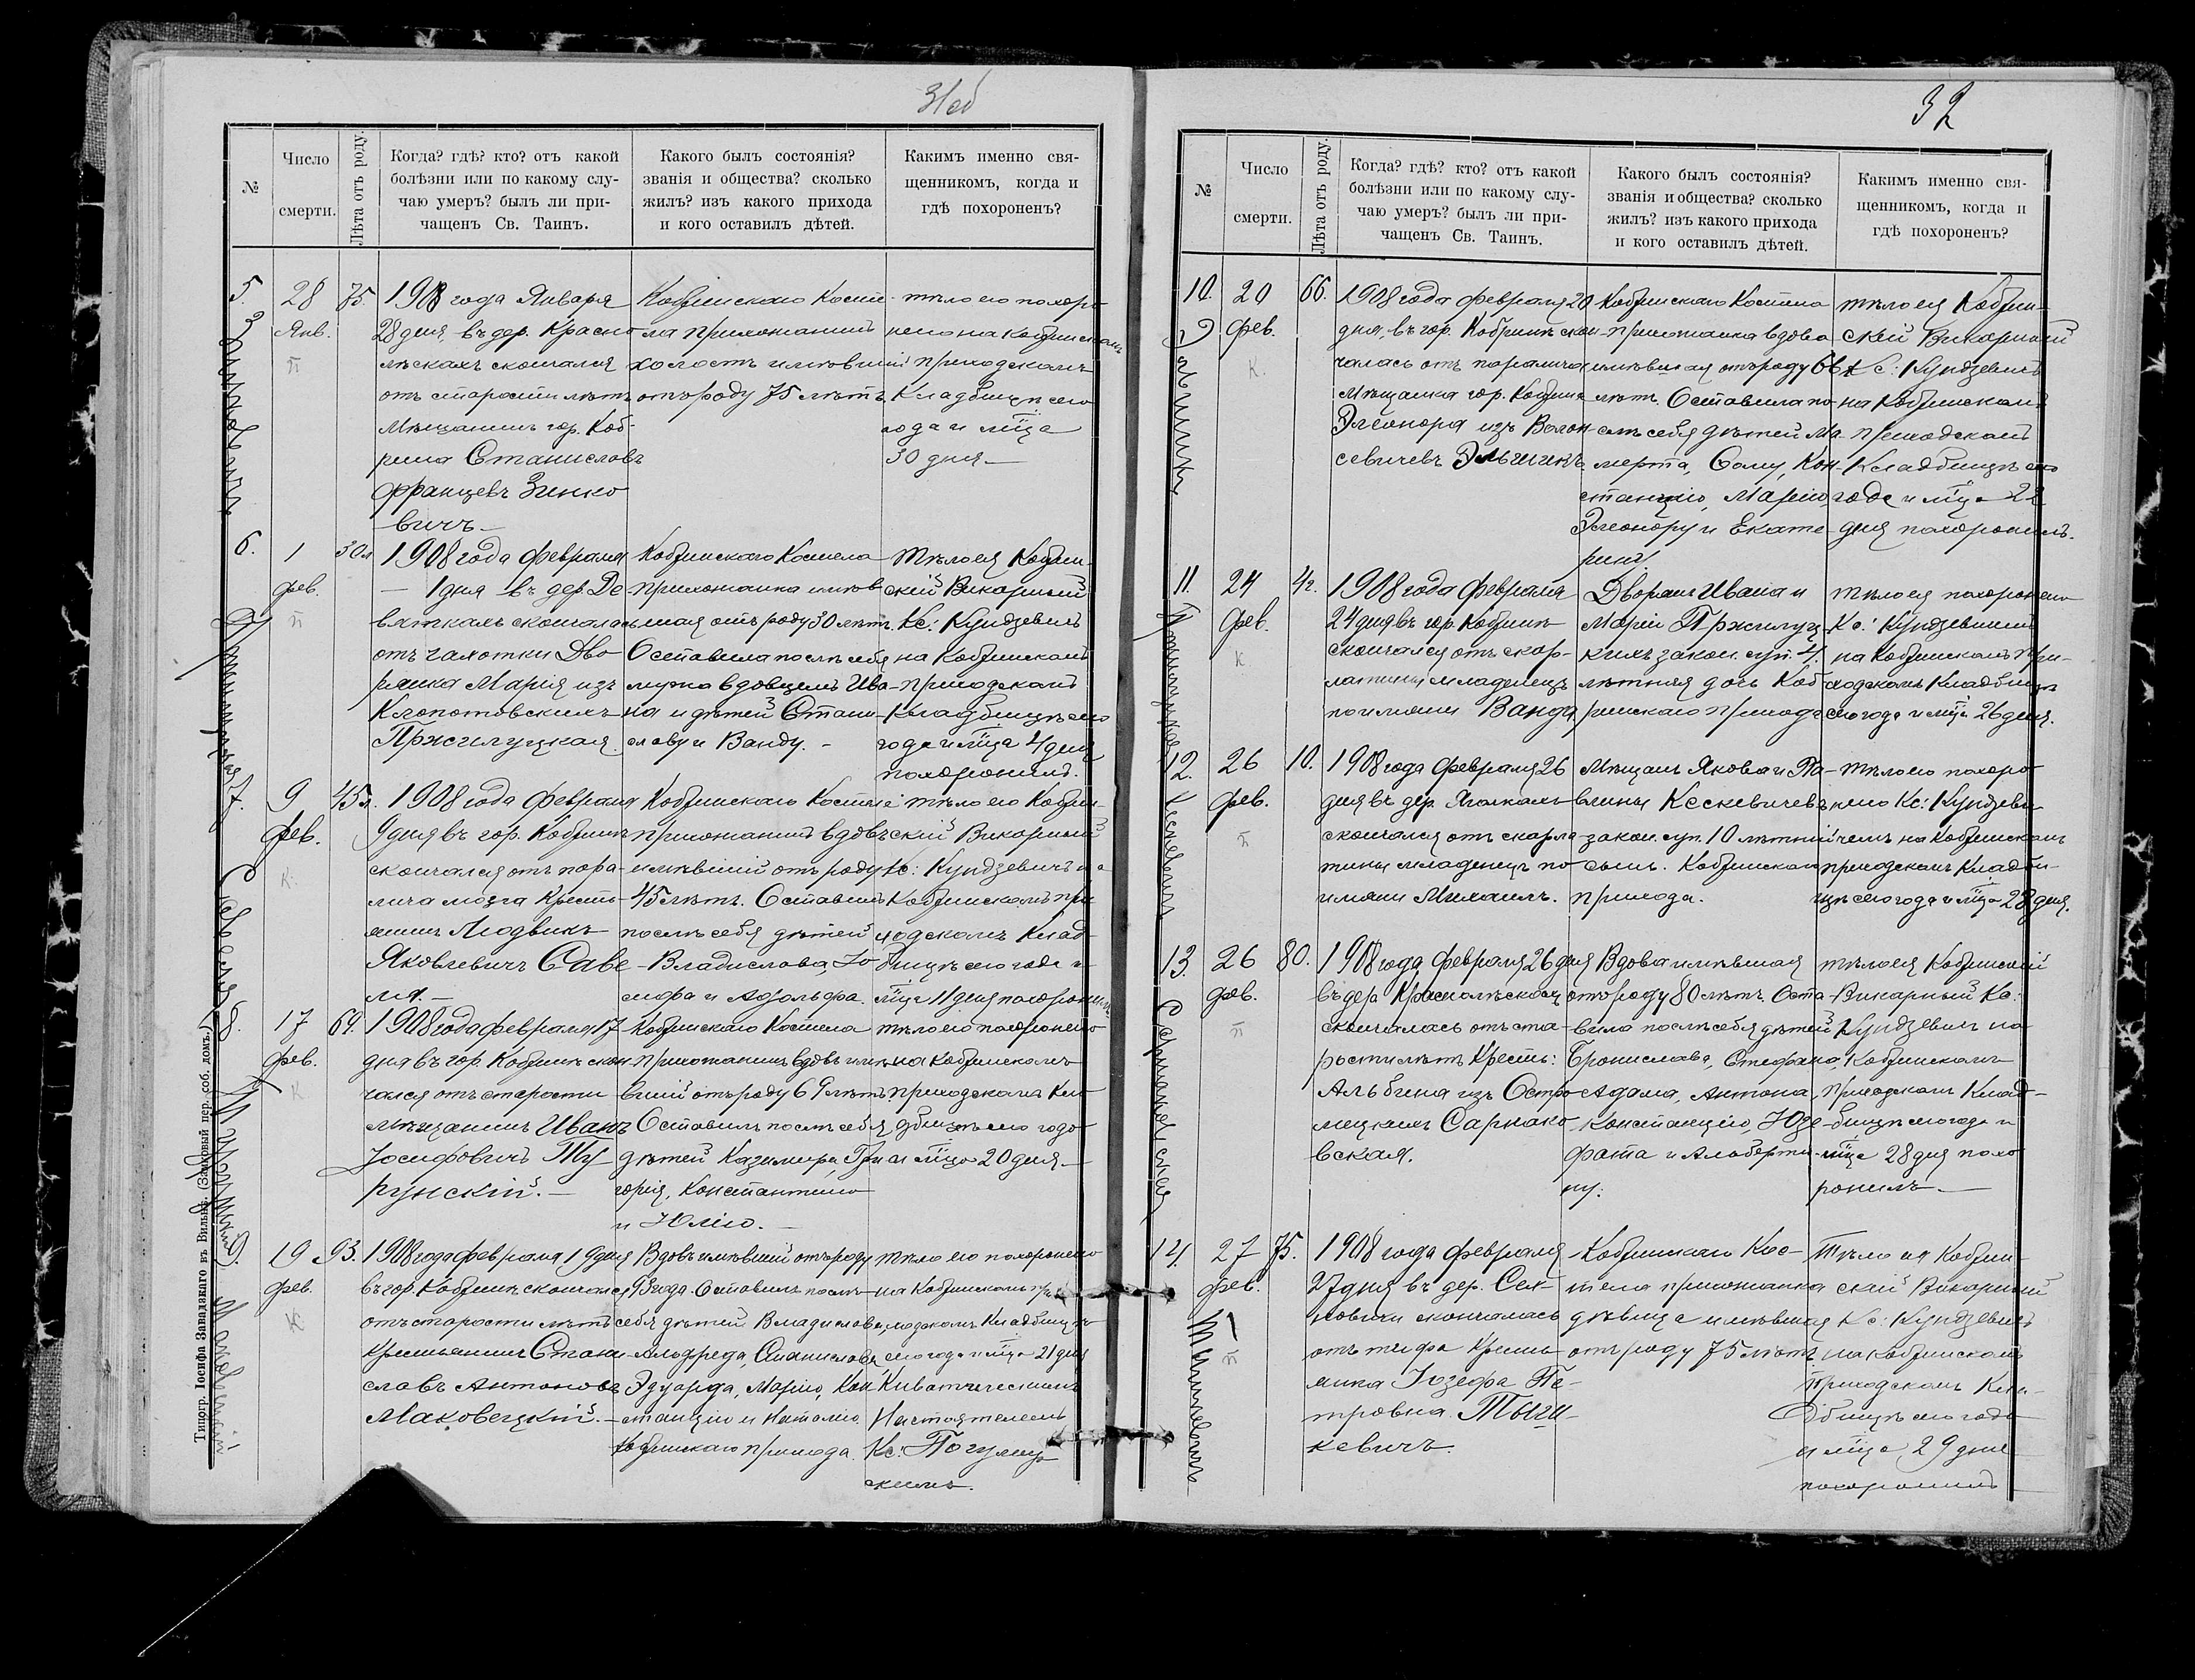 31об
№
Число
смерти.
Лѣта отъ роду.
Когда? гдѣ? кто? отъ какой
болѣзни или по какому слу-
чаю умеръ? былъ ли при-
чащенъ Св. Таинъ.
Какого былъ состоянія?
званія и общества? сколько
жилъ? изъ какого прихода
и кого оставилъ дѣтей.
Какимъ именно свя-
щенникомъ, когда и
гдѣ похороненъ?
5.
Зинкевичъ
28
Янв.
п
75.
1908 года Января
28 дня, въ дер. Красно
лѣскахъ скончался
отъ старости лѣтъ
Мѣщанинъ гор. Коб-
рина Станиславъ
Францевъ Зинко
вичъ.
Кобринскаго Косте-
ла прихожанинъ
холостъ имѣвшій
отъ роду 75 лѣтъ
тѣло его похоро-
нено на Кобринскомъ
приходскомъ
Кладбищѣ сего
года и мѣца
30 дня
6.
Пржилуцкая
1
фев.
п
30 л
1908 года Февраля
1 дня въ дер. Де
вяткахъ скончалась
отъ чахотки Дво
рянка Марія изъ
Клопотовскихъ
Пржилуцкая.
Кобринскаго Костела
прихожанка имѣв
шая отъ роду 30 лѣтъ.
Оставила послѣ себя
мужа вдовцемъ Ива-
на и дѣтей Стани-
славу и Ванду.
Тѣло ея Кобрин-
скій Викарный
Кс: Кундзевичъ
на Кобринскомъ
приходскомъ
Кладбищѣ сего
года и мѣца 4 дня
похоронилъ.
7.
Савеля
9
фев.
К
45 л.
1908 года Февраля
9 дня въ гор. Кобринѣ
скончался отъ пора-
лича мозга Кресть-
янинъ Людвикъ
Яковлевичъ Саве
ля.
Кобринскаго Костела
прихожанинъ вдовъ
имѣвшій отъ роду
45 лѣтъ. Оставилъ
послѣ себя дѣтей
Владислава, Ю
зефа и Адольфа.
тѣло его Кобрин-
скій Викарный
Кс: Кундзевичъ на
Кобринскомъ при
ходскомъ Клад
бищѣ сего года и
мѣца 11 дня похоронилъ.
8.
Турунскій
17
фев.
К
69.
1908 года февраля 17
дня въ гор. Кобринѣ скон
чался отъ старости
мѣщанинъ Иванъ
Іосифовичъ Ту
рунскій.
Кобринскаго Костела
прихожанинъ вдовъ имѣ
вшій отъ роду 69 лѣтъ.
Оставилъ послѣ себя
дѣтей Казимира, Гри
горія, Константина
и Юлію.
тѣло его похоронено
на Кобринскомъ
приходскомъ Кла
дбищѣ сего года
и мѣца 20 дня
9.
Маковецкій
19
фев.
К
93.
1908 года февраля 19 дня
въ гор. Кобринѣ скончался
отъ старости лѣтъ
Крестьянинъ Стани
славъ Антоновъ
Маковецкій.
Вдовъ имѣвшій отъ роду
93 года. Оставилъ послѣ
себя дѣтей Владислава,
Альфреда, Станислава,
Эдуарда, Марію, Кон
станцію и Наталію
Кобринскаго прихода.
тѣло его похоронено
на Кобринскомъ при
ходскомъ Кладбищѣ
сего года и мѣца 21 дня
Настоятелемъ
Кс:
скимъ.
Типогр. Іосифа Завадзкаго въ Вильнѣ. (Замковый пер. соб. домъ.)
32
№
Число
смерти.
Лѣта отъ роду.
Когда? гдѣ? кто? отъ какой
болѣзни или по какому слу-
чаю умеръ? былъ ли при-
чащенъ Св. Таинъ.
Какого былъ состоянія?
званія и общества? сколько
жилъ? изъ какого прихода
и кого оставилъ дѣтей.
Какимъ именно свя-
щенникомъ, когда и
гдѣ похороненъ?
10.
20
фев.
К.
66.
1908 года февраля 20
дня, въ гор. Кобринѣ скон-
чалась отъ поралича
Мѣщанка гор. Кобрина
Элеонора изъ Волон
севичевъ
Кобринскаго Костела
прихожанка вдова
имѣвшая отъ роду 66
лѣтъ. Оставила по-
слѣ себя дѣтей
Кон-
станцію, Марію,
Элеонору и Екате-
рину.
тѣло ея Кобрин-
скій Викарный
Кс: Кундзевичъ
на Кобринскомъ
приходскомъ
Кладбищѣ сего
года и мѣца 22
дня похоронилъ.
11.
Пржилуцкая
24
фев.
К
4 г.
1908 года Февраля
24 дня въ гор. Кобринѣ
скончался отъ скар-
латины младенецъ
по имени Ванда
Дворянъ Ивана и
Маріи Пржилуц-
кихъ закон. суп. 4
лѣтняя дочь Коб
ринскаго прихода
тѣло ея похоронено
Кс: Кундзевичемъ
на Кобринскомъ при-
ходскомъ Кладбищѣ
сего года и мѣца 26 дня.
12.
Кескевичъ
26
фев.
п
10.
1908 года Февраля 26
дня въ дер.
скончался отъ скарла-
тины младенецъ по
имени Михаилъ.
Мѣщанъ Якова и Па-
влины Кескевичевъ
закон. суп. 10 лѣтній
сынъ. Кобринскаго
прихода.
тѣло его похоро-
нено Кс: Кундзеви-
чемъ на Кобринскомъ
приходскомъ Кладби-
щѣ сего года и мѣца 28 дня.
13.
Сарнаковская
26
фев.
п
80.
1908 года Февраля 26 дня
въ дер. Краснолѣскахъ
скончалась отъ ста-
рости лѣтъ Кресть:
Альбина изъ Остро
мецкихъ Сарнако
вская.
Вдова имѣвшая
отъ роду 80 лѣтъ. Оста-
вила послѣ себя дѣтей
Бронислава, Стефана,
Адама, Антона,
Констанцію, Юзе-
фата и Альберти-
ну.
тѣло ея Кобринскій
Викарный Кс:
Кундзевичъ на
Кобринскомъ
приходскомъ Клад-
бищѣ сего года и
мѣца 28 дня похо
ронилъ
14.
27
фев.
п
75.
1908 года Февраля
27 дня въ дер. Сех-
новичи скончалась
отъ тифа Кресть-
янка Іозефа Пе-
тровна
кевичъ.
Кобринскаго Кос-
тела прихожанка
дѣвица имѣвшая
отъ роду 75 лѣтъ
Тѣло ея Кобрин-
скій Викарный
Кс: Кундзевичъ
на Кобринскомъ
Приходскомъ Кла-
дбищѣ сего года
и мѣца 29 дня
похоронилъ